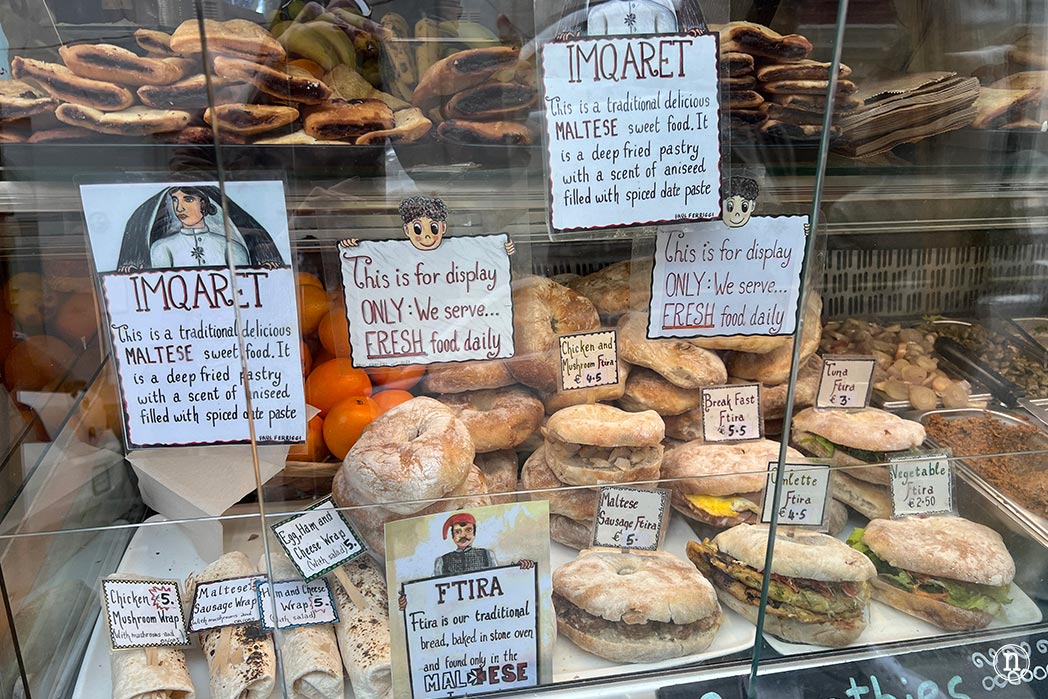 IMQARET
This is a traditional delicious
MALTESE sweet food. It
is a deep fried pastry
with a scent of aniseed
filled with spiced date paste
PAUL FERRIGGI
IMQARET
This is a traditional delicious
MALTESE sweet food. It
is a deep fried pastry
with a scent of aniseed
filled with spiced date paste
PAUL FERRIGGI
This is for display
ONLY: We serve...
FRESH food daily
This is for display
ONLY: We serve...
FRESH food daily
Chicken and
Mushroom Ftira
€ 4.5
Break Fast
Ftira
€ 5.5
Tuna
Ftira
€ 3.
Maltese
Sausage Ftira
€ 5.
Ftira
€ 4.5
Vegetable
Ftira
€ 2.50
Egg, Ham and
Cheese Wrap
(With salad) 5.
Chicken &
Mushroom Wrap
With mushrooms and
€5.
Maltese
Sausage Wrap
Ham and Cheese
Wrap 5.
(With salad)
FTIRA
Ftira is our traditional
bread, baked in stone oven
and found only in the
MALTESE
n